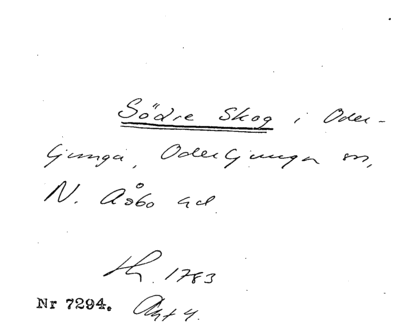 Södre Skog i Oder-
ljunga, Oderljunga sn,
N. Åsbo hd.
th. 1783
Nr 7294. Akt 4.